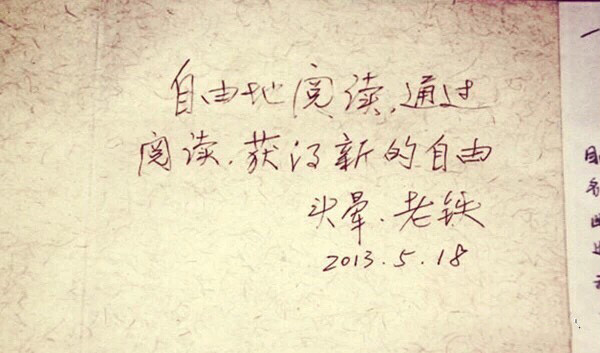 自由地阅读,通过
阅读,获得新的自由
头晕.老铁
2013.5.18